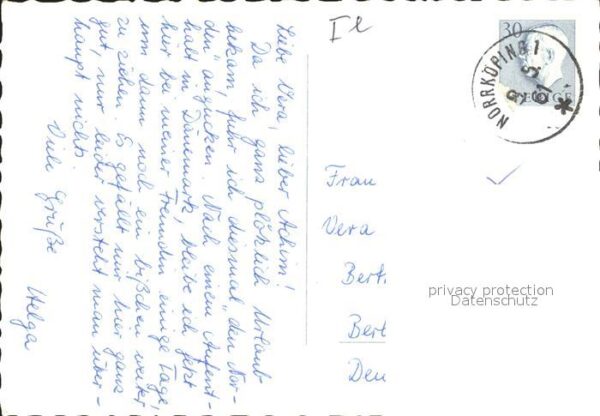 Liebe Vera, lieber Achim!
Da ich ganz plötzlich Urlaub
bekam, fuhr ich diesmal "den Nor-
den" angucken. Nach einem Aufent-
halt in Dänemark, bleibe ich jetzt
hier bei meiner Freundin einige Tage
um dann noch ein bißchen weiter
zu ziehen. Es gefällt mir hier ganz
gut, nur leider versteht man über-
haupt nichts.
Viele Grüße
Helga
I
30
NORRKÖPING 1
SVERIGE
Frau
Vera
Bert
Deu
privacy protection
Datenschutz